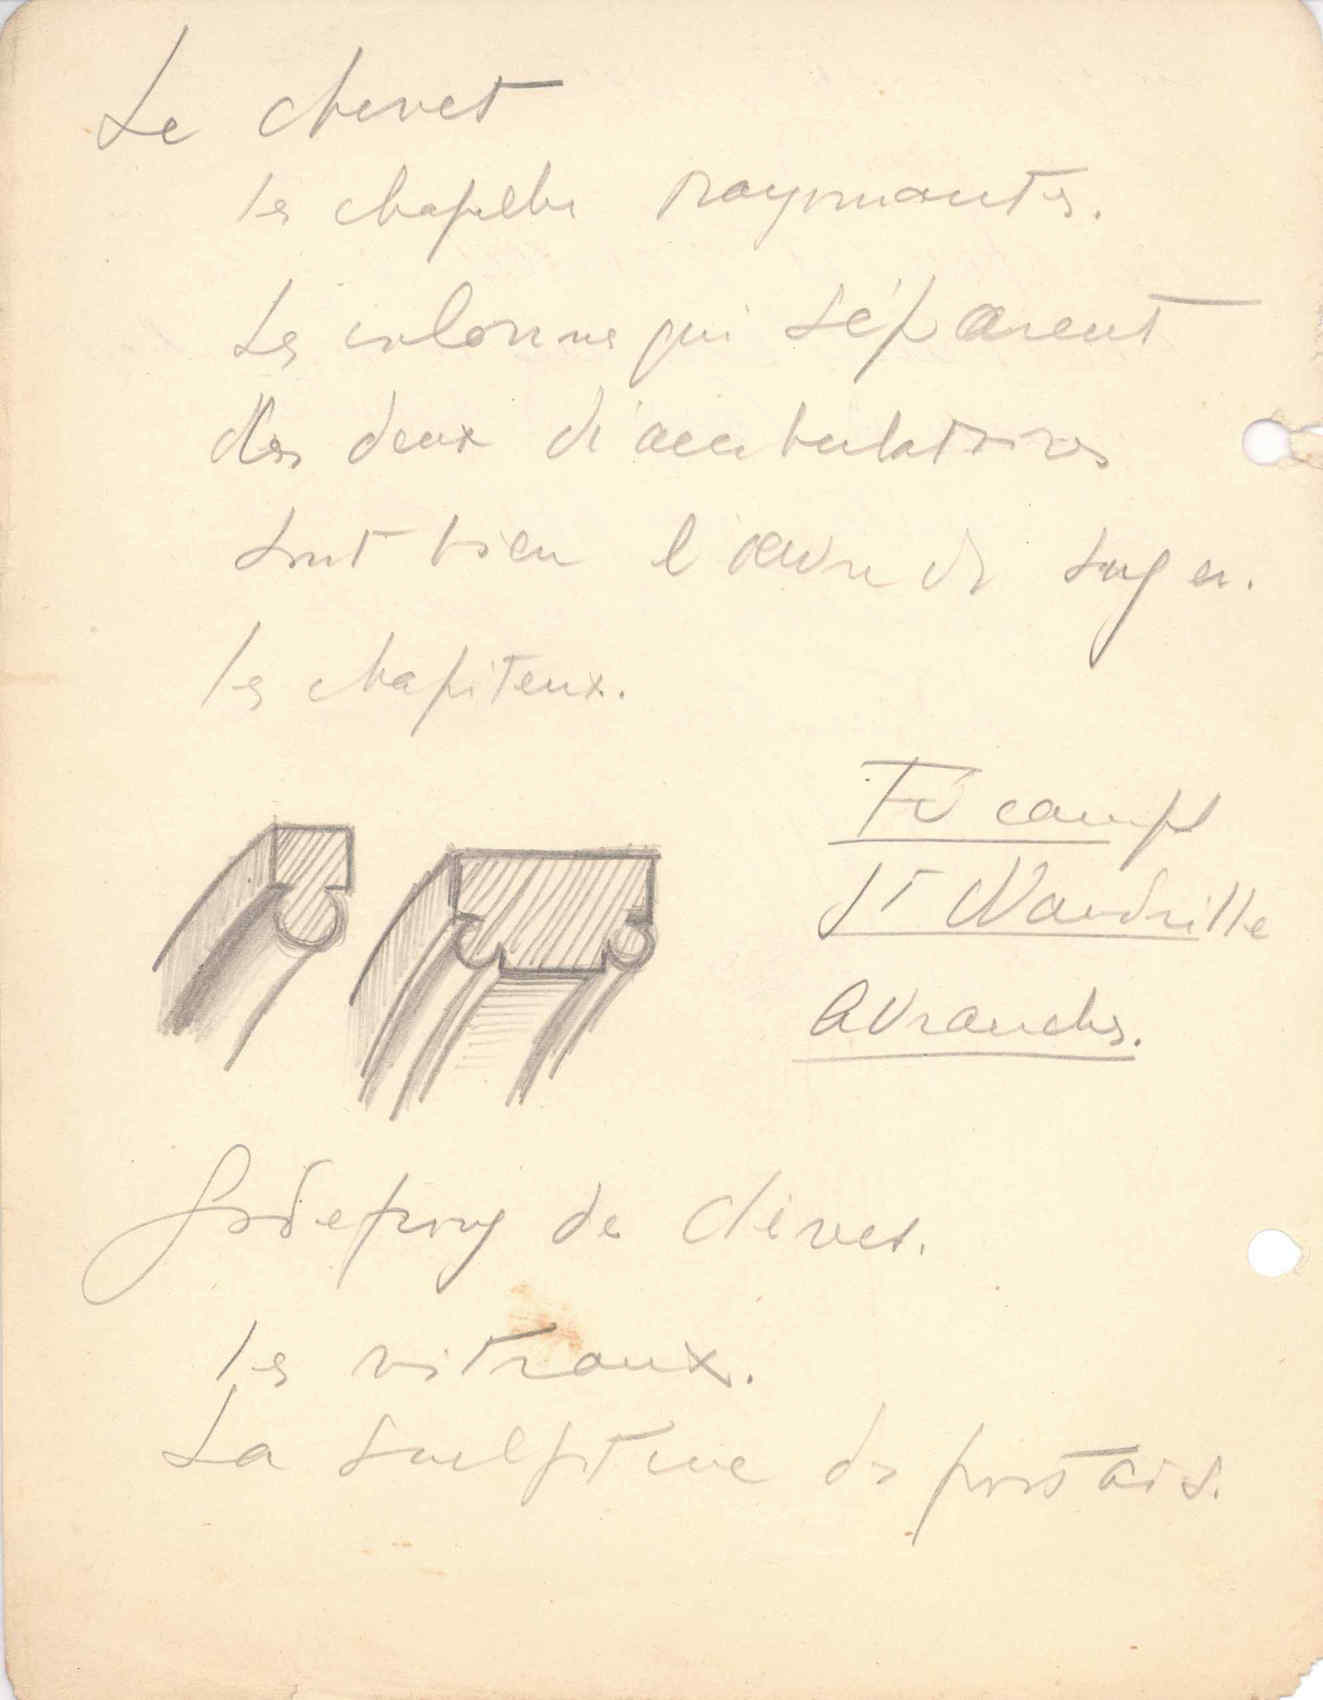 Le chevet
les chapelles rayonnantes.
Les colonnes qui séparent
les deux déambulatoires
sont bien l'œuvre de Suger.
les chapiteux.
Fécamp
St Wandrille
Avranches.
Godefroy de Claires.
les vitraux.
La sculpture des portails.